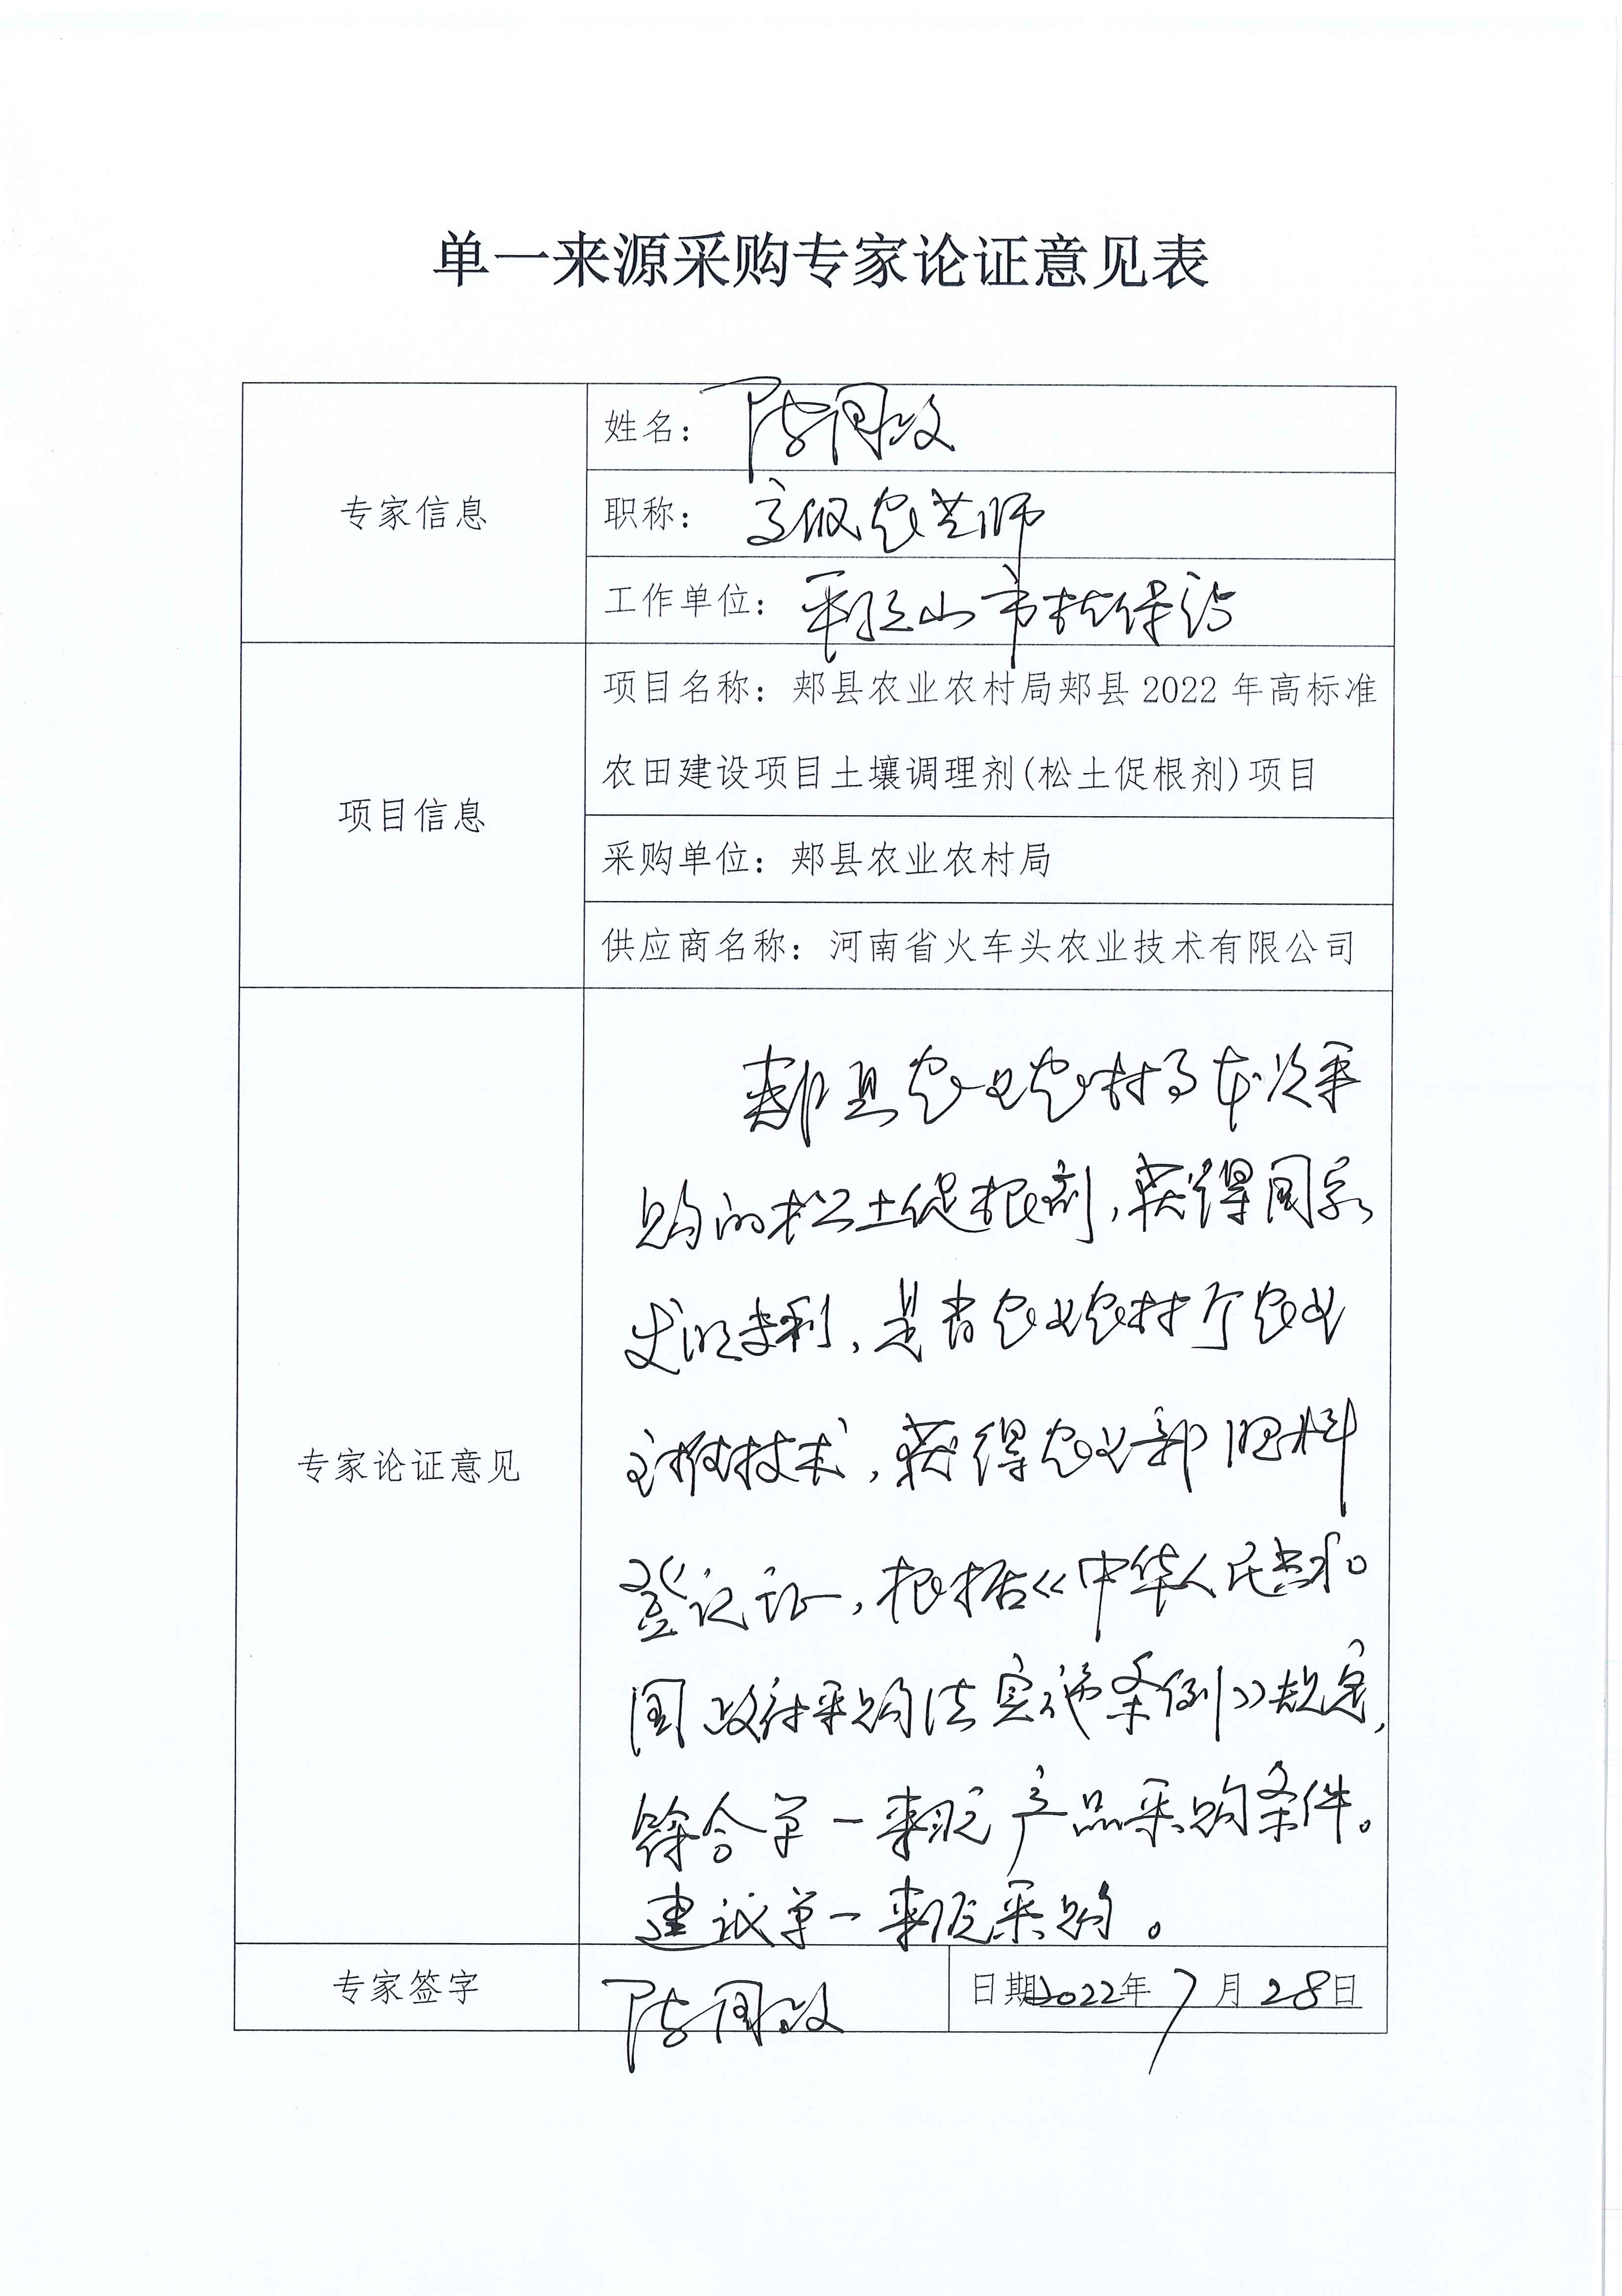 单一来源采购专家论证意见表
专家信息
姓名：陈国政
职称：高级农艺师
工作单位：平顶山市植保站
项目信息
项目名称：郏县农业农村局郏县2022年高标准
农田建设项目土壤调理剂(松土促根剂)项目
采购单位：郏县农业农村局
供应商名称：河南省火车头农业技术有限公司
专家论证意见
郏县农业农村局本次采
购的松土促根剂，获得国家
发明专利，是省农业农村厅农业
主推技术，获得农业部肥料
登记证，根据《中华人民共和
国政府采购法实施条例》规定，
符合单一来源产品采购条件。
建议单一来源采购。
专家签字
陈国政
日期2022年7月28日